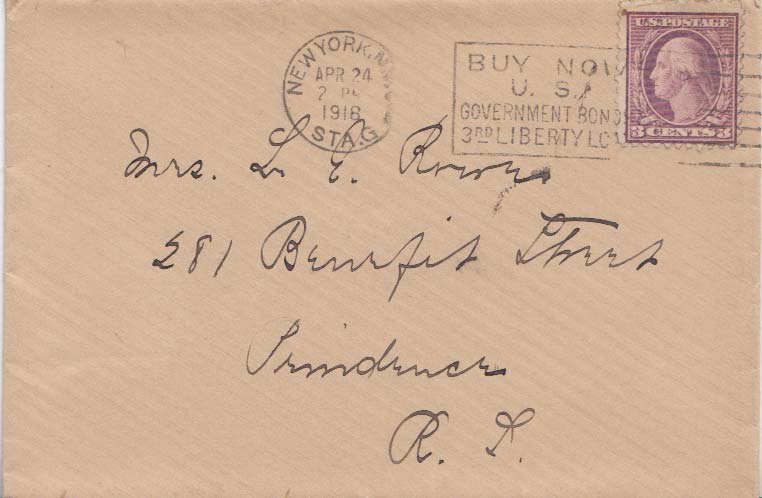 NEW YORK, N.
APR 24
2 PM
1918
STA. G
BUY NOW
U. S.
GOVERNMENT BONDS
3RD LIBERTY LO
U.S. POSTAGE
3 CENTS 3
Mrs. L. E.
281 Benefit Street
Providence
R. I.